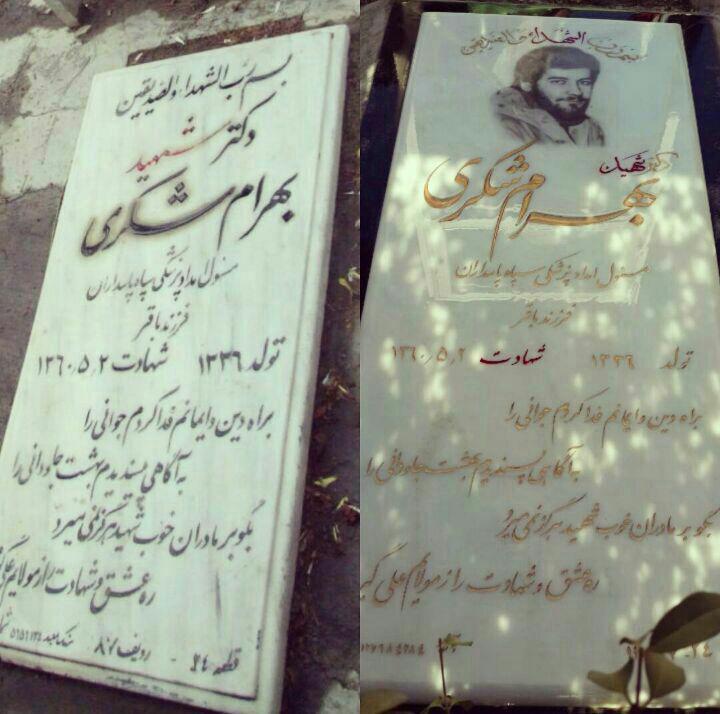 بسم رب الشهداء والصدیقین
دکتر شهید
بهرام شکری
مسئول امداد پزشکی سپاه پاسداران
فرزند باقر
تولد ۱۳۳۶ شهادت ۱۳۶۰٫۵٫۲
براه دین و ایمانم فدا کردم جوانی را
به آگاهی پسندیدم بهشت جاودانی را
بگو بر مادران خوب شهید هرگز نمی میرد
ره عشق و شهادت را ز مولایم علی
قطعه ۲۴ ردیف ۸۷
الشهداء والصدیقین
دکتر شهید
بهرام شکری
مسئول امداد پزشکی سپاه پاسداران
فرزند باقر
تولد ۱۳۳۶ شهادت ۱۳۶۰٫۵٫۲
براه دین و ایمانم فدا کردم جوانی را
به آگاهی پسندیدم بهشت جاودانی را
بگو بر مادران خوب شهید هرگز نمی میرد
ره عشق و شهادت را ز مولایم علی گیر